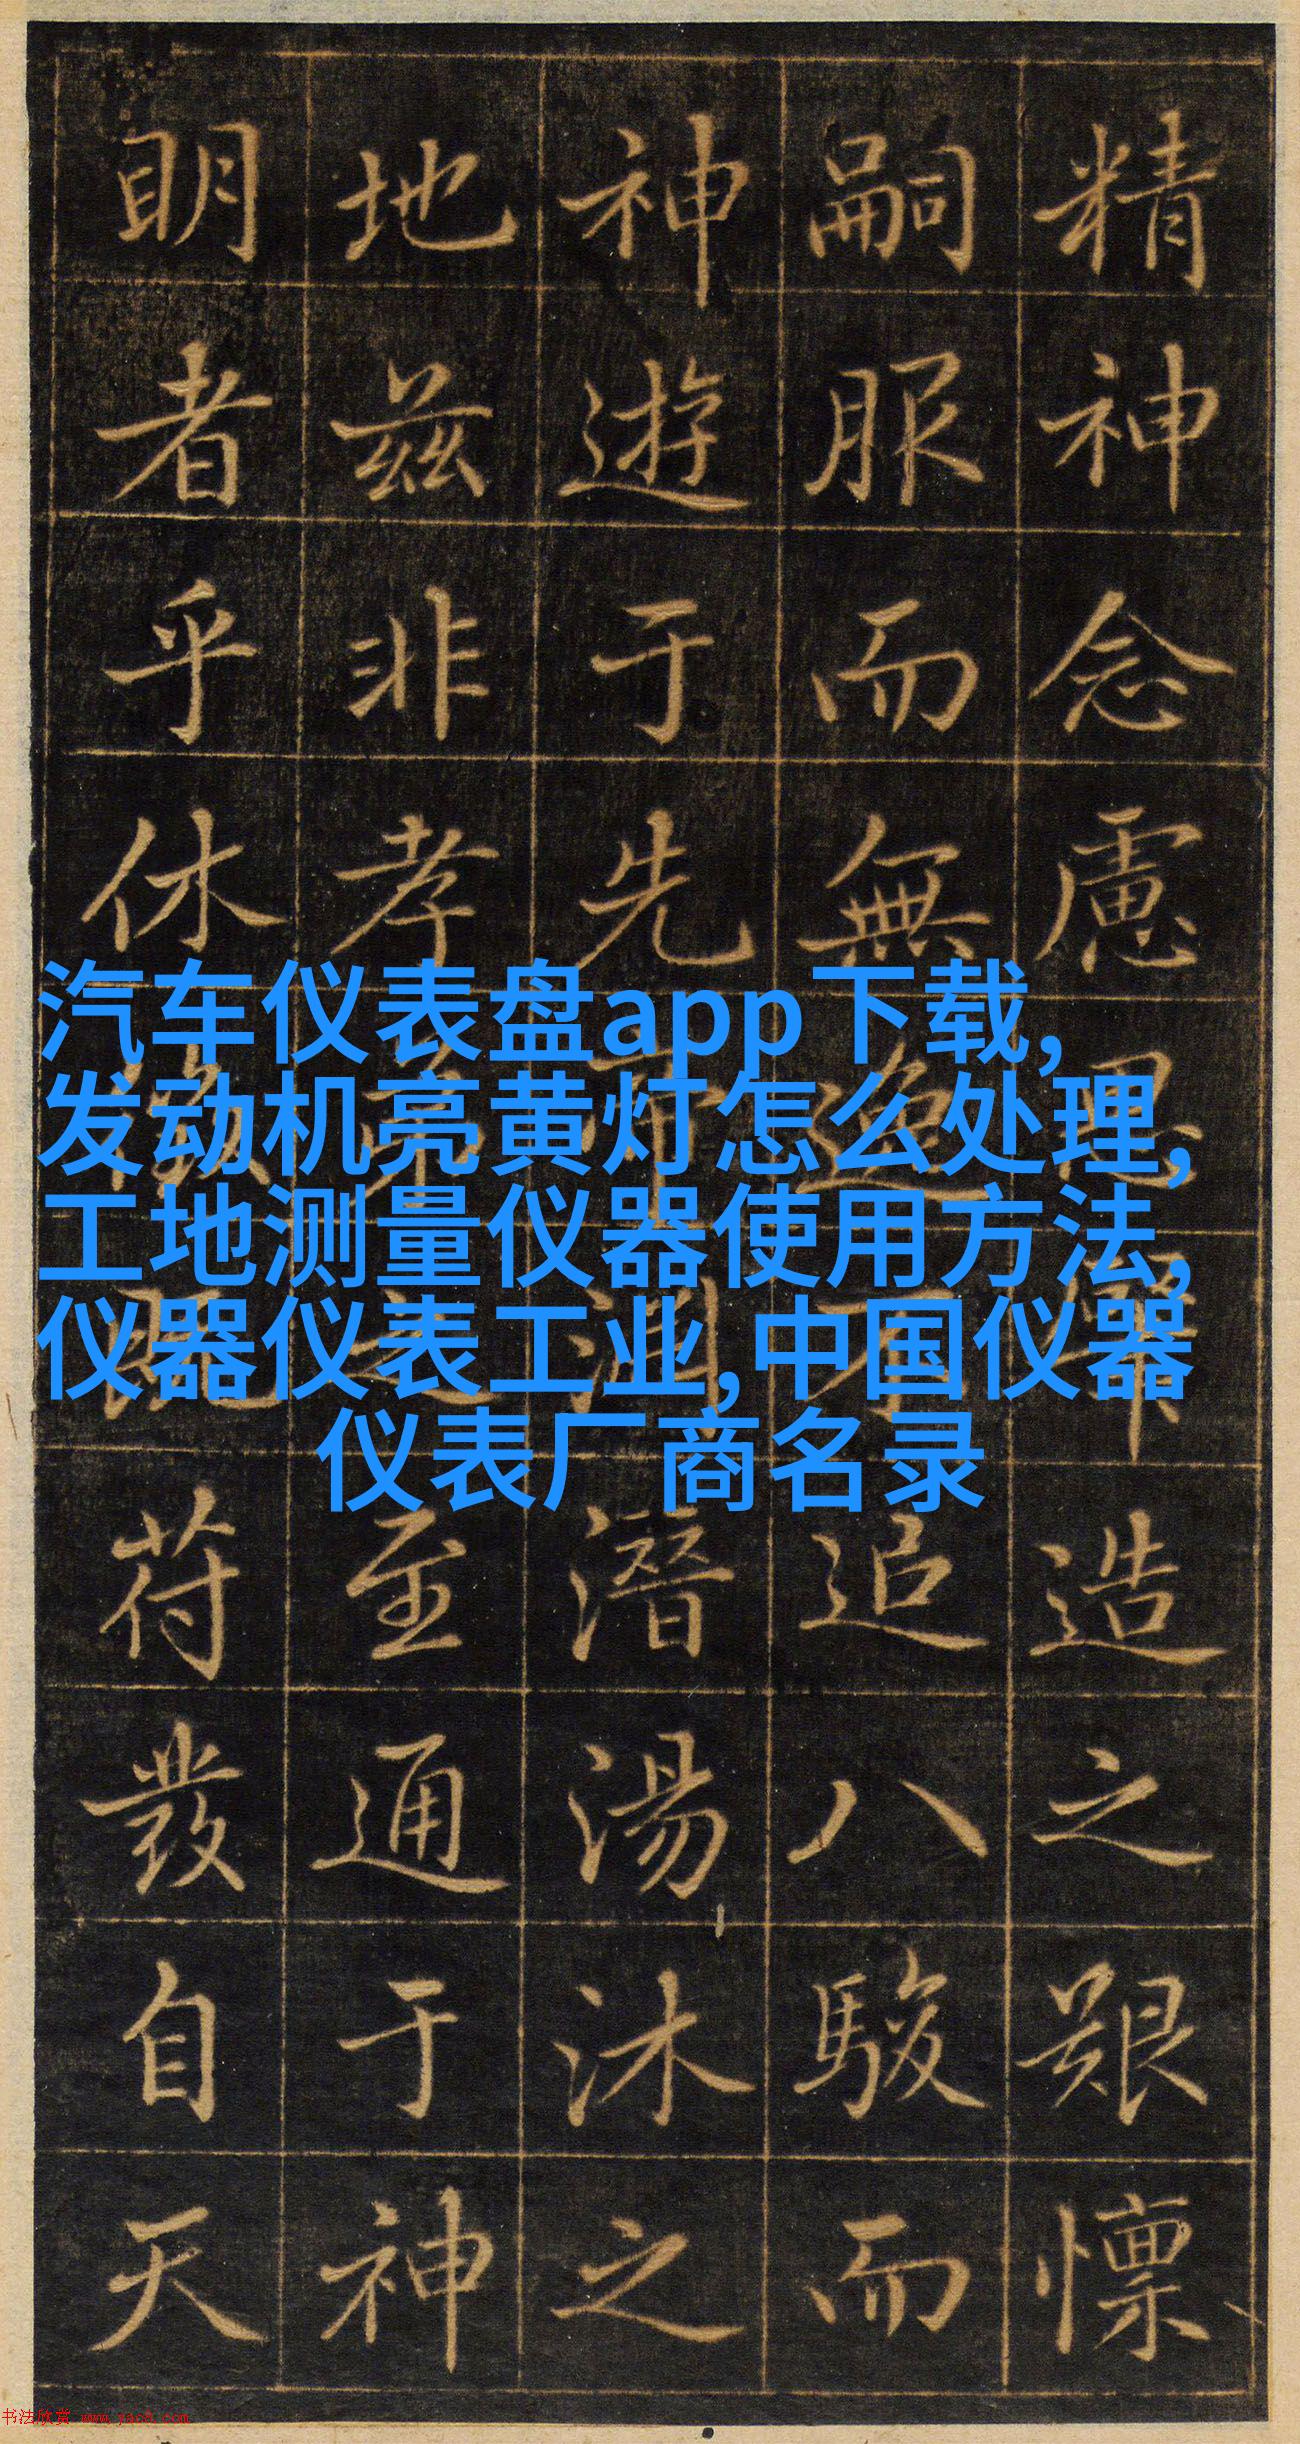 精神念慮造之艱懍
嗣服而無逸不追八駿而
神遊于先潛湯沐之
地茲非孝弟之至通于神
明者乎休徵既符發自天
汽车仪表盘app下载,
发动机亮黄灯怎么处理,
工地测量仪器使用方法,
仪器仪表工业,中国仪器
仪表厂商名录
书法欣赏 www.yac8.com